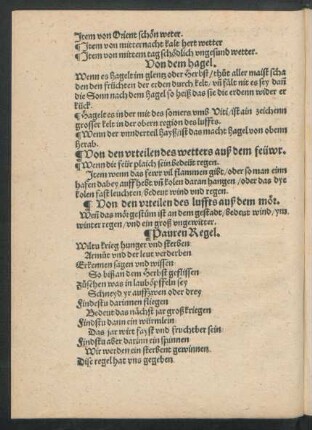 Item von Orient schön weter.
¶Item von mitternacht kalt hert wetter
¶Item von mittem tag schödlich vngesund wetter.
Von dem hagel.
Wenn es hagelt im glentz oder Herbst/ thůt aller maist scha
den den früchten der erden durch kelt/ vñ fält nit es sey dañ
die Sonn nach dem hagel so heiß das sie die erdenn wider er
kück.
¶Hagelt es in der mit des somers vmb Viti/ ist ain zeichenn
grosser kelt in der obern region des luffts.
¶Wenn der vnnderteil hayß/ ist das macht hagel von obenn
herab.
¶Von den vrteilen des wetters auß dem feüwr.
¶Wenn dir feür plaich sein bedeüt regen.
Item wenn das fewr vil flammen gibt/ oder so man einn
hafen dabey auff hebt vñ kolen daran hangen/ oder das dye
kolen fast leuchten/ bedeut wind vnd regen.
¶Von den vrteilen des luffts auß dem mör.
Weñ das mör gestüm ist an dem gestadt/ bedeut wind/ ym
winter regen/ vnd ein groß vngewitter.
¶Pauren Regel.
Wiltu krieg hunger vnd sterben
Armůt vnd der leut verderben
Erkennen sagen vnd wissen
So biß an dem Herbst geflissen
Zů sehen was in lauböpffeln sey
Schneyd yr auff zwen oder drey
Findestu darinnen fliegen
Bedeut das nächst jar groß kriegen
Findstu dann ein würmlein
Das jar wirt fayst vnd fruchtber sein
Findstu aber darinn ein spinnen
Wir werden ein sterbent gewinnen.
Dise regel hat vns gegeben